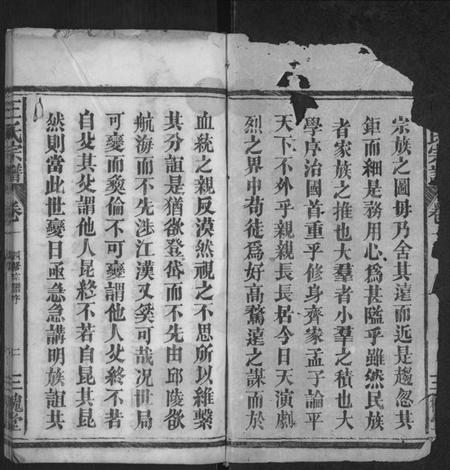 宗族之圖毋乃舍其遠而近是趨忽其
鉅而細是務用心為甚隘乎雖然民族
者家族之推也大羣者小羣之積也大
學序治國首重乎修身齊家孟子論平
天下不外乎親親長長居今日天演劇
烈之界中苟徒為好高騖遠之謀而於
血統之親反漠然視之不思所以維繫
其分誼是猶欲登岱而不先由邱陵欲
航海而不先涉江漢又奚可哉况世局
可變而彝倫不可變謂他人父終不若
自父其父謂他人昆終不若自昆其昆
然則當此世變日亟急急講明族誼其
王氏宗譜
卷一
三槐堂